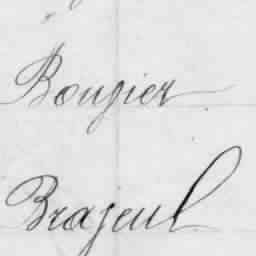 Bougier
Brajeul